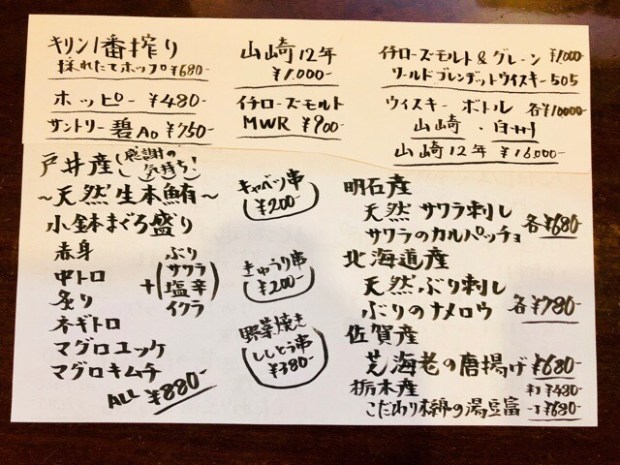 キリン1番搾り
採れたてホップ¥680-
ホッピー ¥480-
サントリー碧Ao ¥750-
山崎12年
¥1,000-
イチローズモルト
MWR ¥900-
イチローズモルト&グレーン ¥1,000
ワールドブレンデットウイスキー505
ウィスキー ボトル 各¥10000-
山崎・白州
山崎12年 ¥16,000-
戸井産(感謝の気持ち!)
~天然生本鮪~
小鉢まぐろ盛り
赤身
中トロ
炙り
ネギトロ
マグロユッケ
マグロキムチ
+(ぶり
サワラ
塩辛
イクラ)
ALL ¥880-
キャベツ串
¥200-
きゅうり串
¥200-
野菜焼き
ししとう串
¥380-
明石産
天然サワラ刺し
サワラのカルパッチョ 各¥680-
北海道産
天然ぶり刺し
ぶりのナメロウ 各¥780-
佐賀産
芝海老の唐揚げ ¥680-
栃木産 ¥480-
こだわり木綿の湯豆富 ¥680-